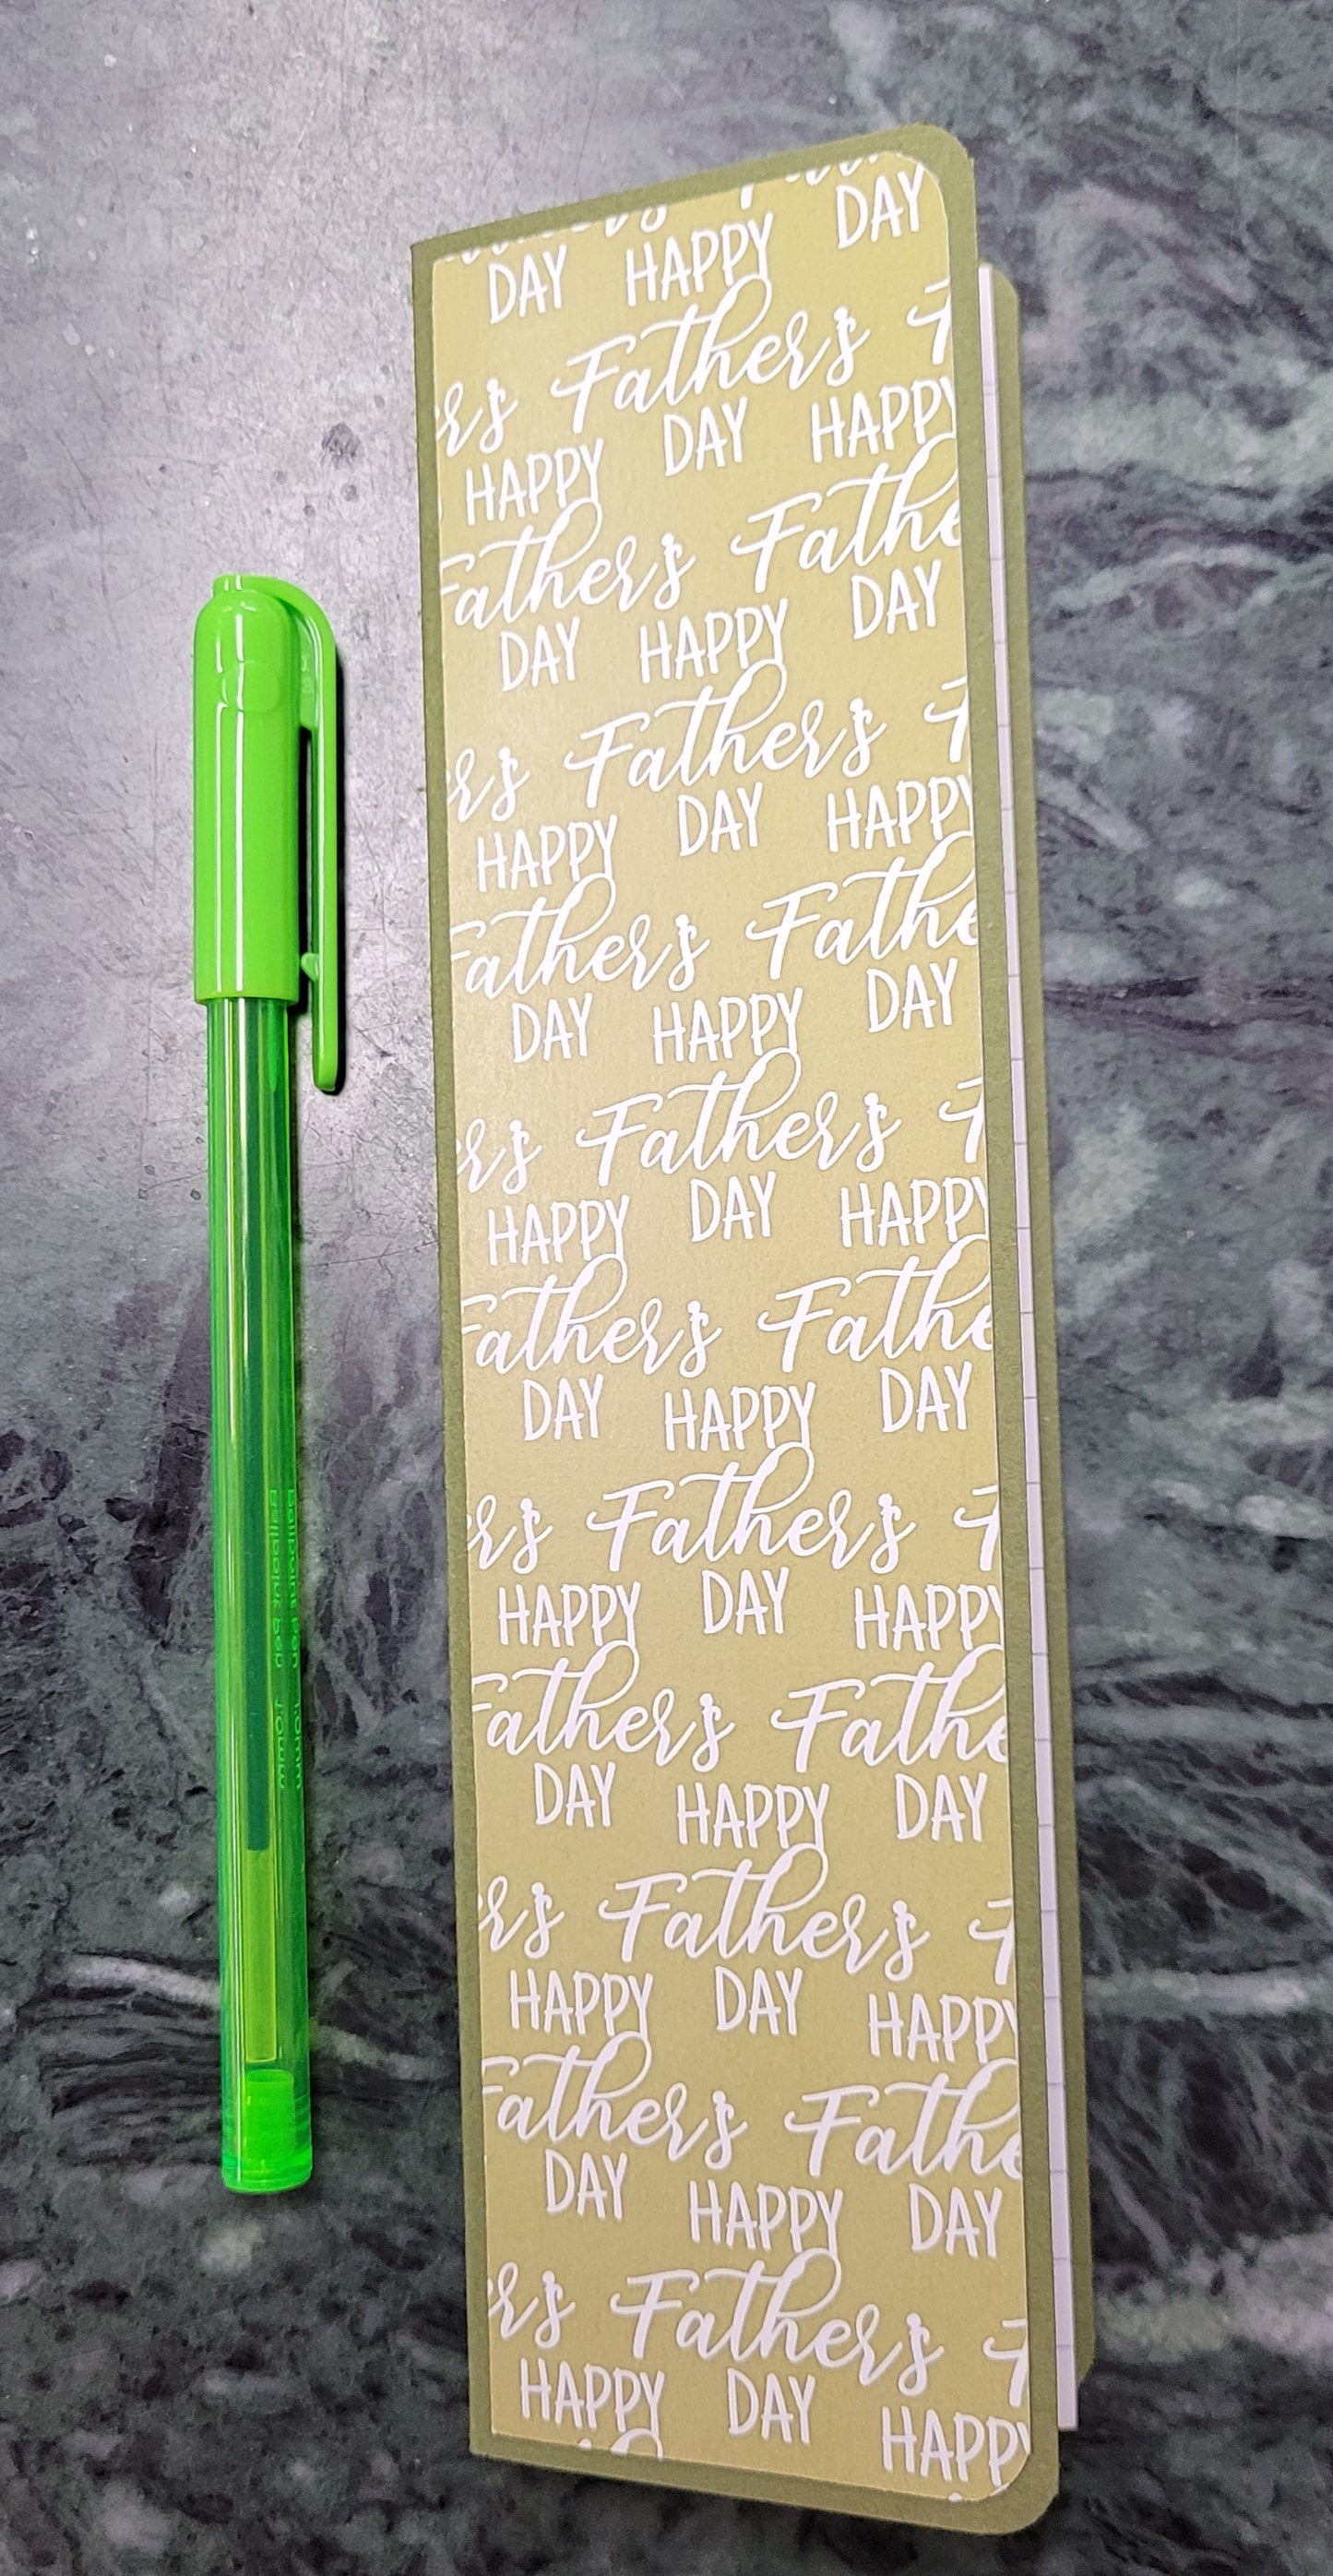 DAY HAPPY DAY
ers Fathers F
HAPPY DAY HAPPY
Fathers Fathe
DAY HAPPY DAY
ers Fathers F
HAPPY DAY HAPPY
Fathers Fathe
DAY HAPPY DAY
ers Fathers F
HAPPY DAY HAPPY
Fathers Fathe
DAY HAPPY DAY
ers Fathers F
HAPPY DAY HAPPY
Fathers Fathe
DAY HAPPY DAY
ers Fathers F
HAPPY DAY HAPPY
Fathers Fathe
DAY HAPPY DAY
ers Fathers F
HAPPY DAY HAPPY
Ballpoint pen 1.0mm